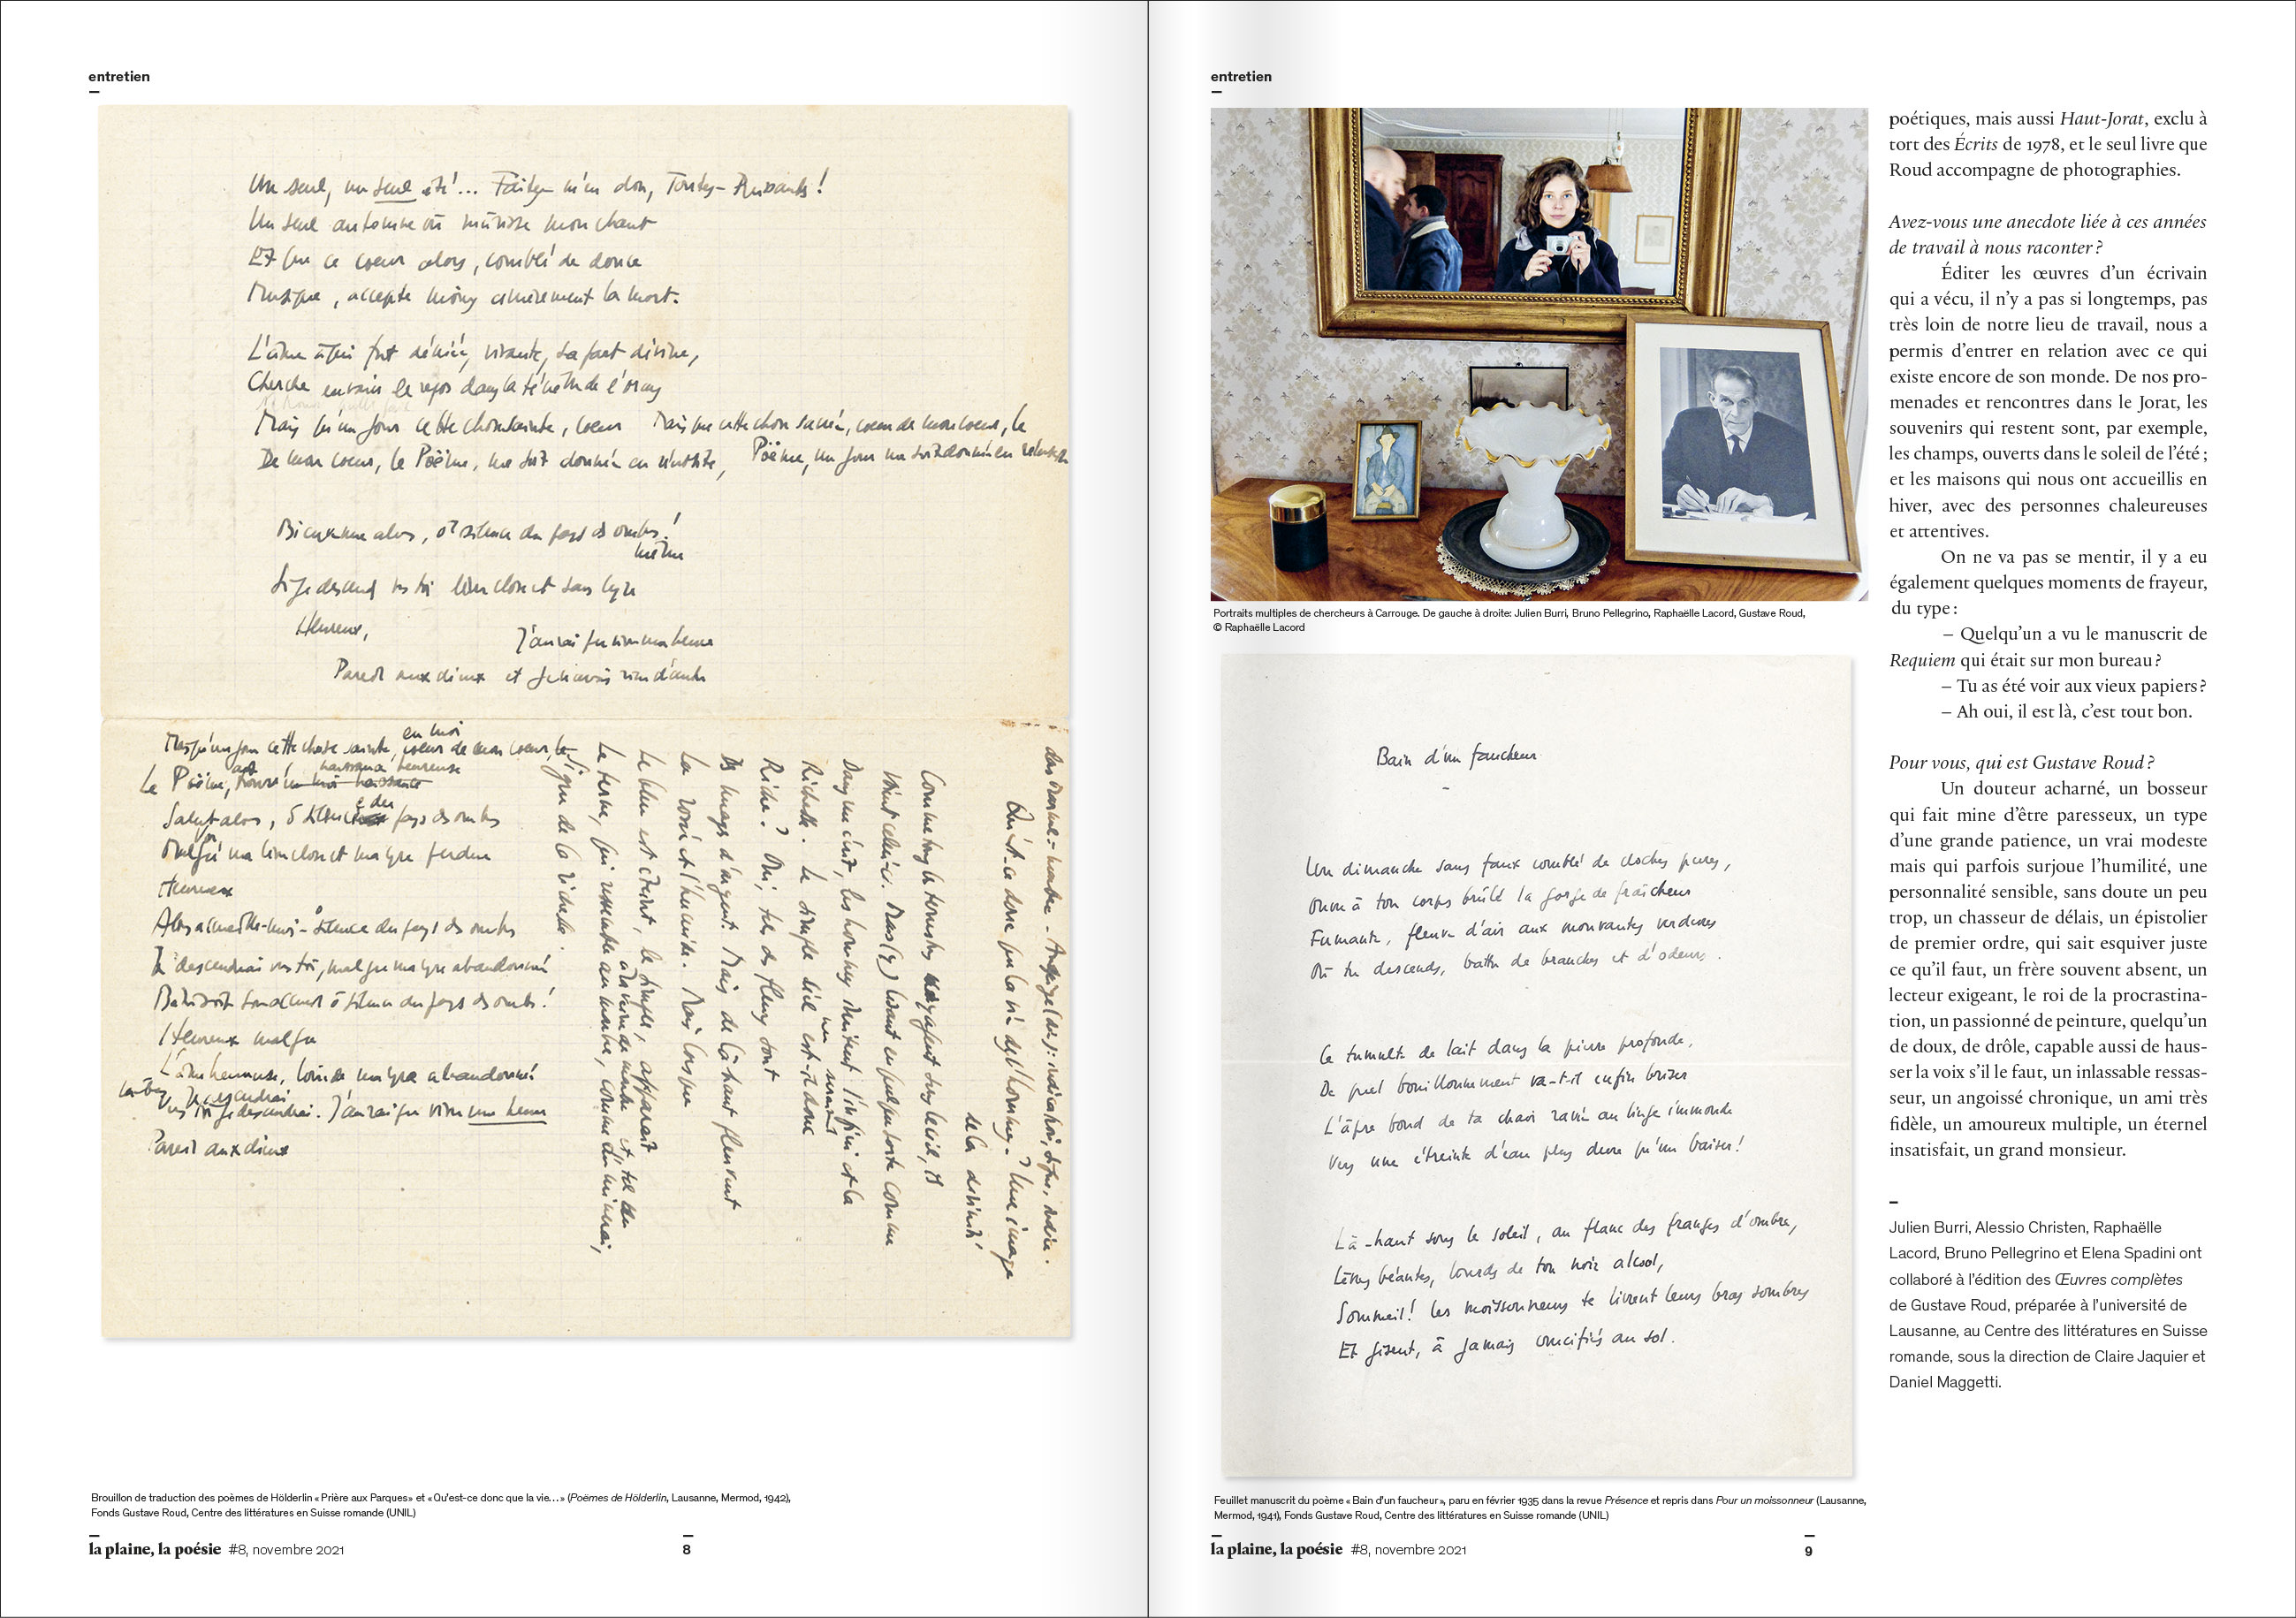 entretien
Un seul, un seul été!... Faites-m'en don, Toutes-Puissants!
Un seul automne où mûrisse mon chant
Et que ce cœur alors, comblé de douce
Musique, accepte moins amèrement la mort.
L'âme à qui fut déniée, vivante, sa part divine,
Cherche en vain le repos dans la ténèbre de l'Orcus
Mais qu'un jour cette chose sainte, cœur
De mon cœur, le Poème, me soit donnée en réussite,
Mais que cette chose sacrée, cœur de mon cœur, le
Poème, un jour me soit donnée en
Bienvenue alors, ô silence du pays des ombres!
même
Si je descends vers toi bien clos et sans lyre
Heureux,
J'aurai pu vivre une heure
Pareil aux dieux et
en moi
Mais qu'un jour cette chose sainte, cœur de mon cœur, le
naissance heureuse
Le Poème, trouve en moi naissance
Salut alors, ô silence du pays des ombres
Malgré ma lyre perdue
Heureux
Alors accueille-moi – silence du pays des ombres
Je descendrai vers toi, malgré ma lyre abandonnée
ô silence du pays des ombres!
Heureux malgré
L'âme heureuse, loin de ma lyre abandonnée
Je descendrai
vers toi je descendrai. J'aurai pu vivre une heure
Pareil aux dieux
Qu'est-ce donc que la vie des hommes? Une image
de la divinité
Comme tous les terrestres voyagent sous le ciel, ils
Dans une cité, les hommes imitent l'infini et la
Richesse. Le simple ciel est-il donc
Riche? Oui, tels des fleurs sont
Les nuages d'argent. Mais de là-haut pleuvent
La rosée et l'humide. Mais lorsque
Le bleu est éteint, le simple, apparaît
Le terne, qui ressemble au marbre, comme du minerai,
Signe de la richesse.
Brouillon de traduction des poèmes de Hölderlin « Prière aux Parques » et « Qu'est-ce donc que la vie… » (Poëmes de Hölderlin, Lausanne, Mermod, 1942),
Fonds Gustave Roud, Centre des littératures en Suisse romande (UNIL)
la plaine, la poésie #8, novembre 2021
8
entretien
Portraits multiples de chercheurs à Carrouge. De gauche à droite: Julien Burri, Bruno Pellegrino, Raphaëlle Lacord, Gustave Roud,
© Raphaëlle Lacord
Bain d'un faucheur
Un dimanche sans faux comblé de cloches pures,
Ouvre à ton corps brûlé la gorge de fraîcheur
Fumante, fleuve d'air aux mouvantes verdures
Où tu descends, battu de branches et d'odeurs.
Ce tumulte de lait dans la pierre profonde,
De quel bouillonnement va-t-il enfin briser
L'âpre bond de ta chair ravie au linge immonde
Vers une étreinte d'eau plus dure qu'un baiser!
Là-haut sous le soleil, au flanc des franges d'ombre,
Lèvres béantes, lourds de ton noir alcool,
Sommeil! les moissonneurs te livrent leurs bras sombres
Et gisent, à jamais crucifiés au sol.
Feuillet manuscrit du poème « Bain d'un faucheur », paru en février 1935 dans la revue Présence et repris dans Pour un moissonneur (Lausanne,
Mermod, 1941), Fonds Gustave Roud, Centre des littératures en Suisse romande (UNIL)
poétiques, mais aussi Haut-Jorat, exclu à
tort des Écrits de 1978, et le seul livre que
Roud accompagne de photographies.
Avez-vous une anecdote liée à ces années
de travail à nous raconter ?
Éditer les œuvres d'un écrivain
qui a vécu, il n'y a pas si longtemps, pas
très loin de notre lieu de travail, nous a
permis d'entrer en relation avec ce qui
existe encore de son monde. De nos pro-
menades et rencontres dans le Jorat, les
souvenirs qui restent sont, par exemple,
les champs, ouverts dans le soleil de l'été ;
et les maisons qui nous ont accueillis en
hiver, avec des personnes chaleureuses
et attentives.
On ne va pas se mentir, il y a eu
également quelques moments de frayeur,
du type :
– Quelqu'un a vu le manuscrit de
Requiem qui était sur mon bureau ?
– Tu as été voir aux vieux papiers ?
– Ah oui, il est là, c'est tout bon.
Pour vous, qui est Gustave Roud ?
Un douteur acharné, un bosseur
qui fait mine d'être paresseux, un type
d'une grande patience, un vrai modeste
mais qui parfois surjoue l'humilité, une
personnalité sensible, sans doute un peu
trop, un chasseur de délais, un épistolier
de premier ordre, qui sait esquiver juste
ce qu'il faut, un frère souvent absent, un
lecteur exigeant, le roi de la procrastina-
tion, un passionné de peinture, quelqu'un
de doux, de drôle, capable aussi de haus-
ser la voix s'il le faut, un inlassable ressas-
seur, un angoissé chronique, un ami très
fidèle, un amoureux multiple, un éternel
insatisfait, un grand monsieur.
Julien Burri, Alessio Christen, Raphaëlle
Lacord, Bruno Pellegrino et Elena Spadini ont
collaboré à l'édition des Œuvres complètes
de Gustave Roud, préparée à l'université de
Lausanne, au Centre des littératures en Suisse
romande, sous la direction de Claire Jaquier et
Daniel Maggetti.
la plaine, la poésie #8, novembre 2021
9